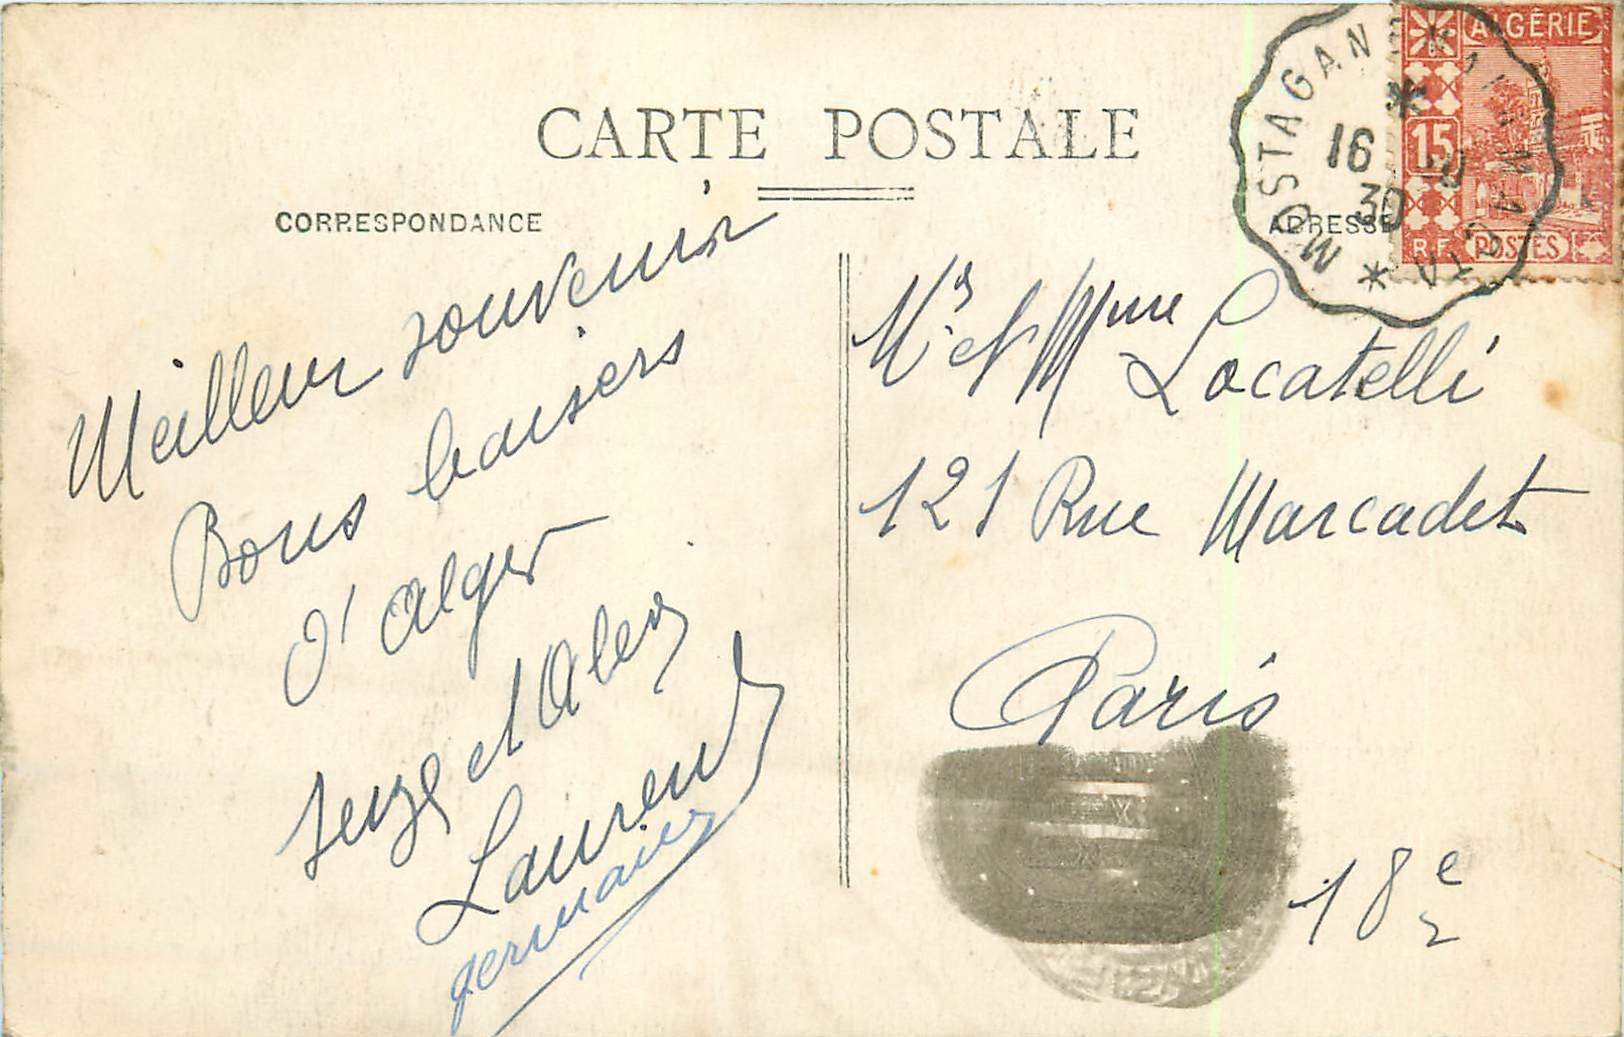 CARTE POSTALE
CORRESPONDANCE
ADRESSE
ALGÉRIE
15
R.F. POSTES
MOSTAGAN
16
30
Meilleur souvenir
Bons baisers
d'Alger
et
Laurent
germaine
Mr et Mme Locatelli
121 Rue Marcadet
Paris
18e